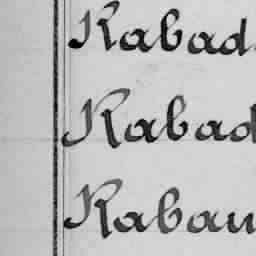 Kabad
Kabad
Kaban